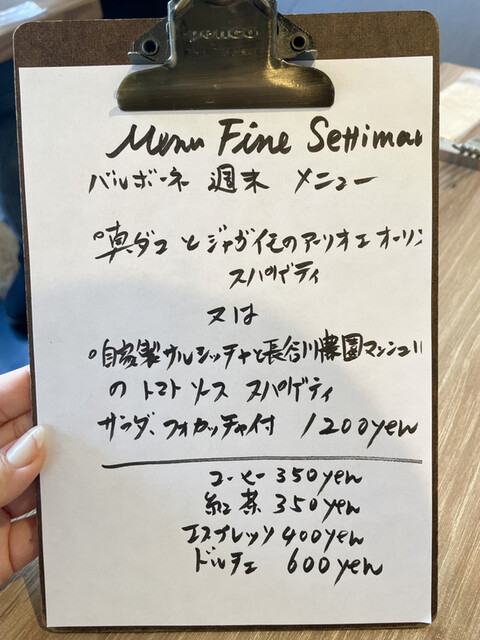 penco
Menu Fine Settimau
バルボーネ 週末 メニュー
°真ダコとジャガイモのアーリオエオーリ
スパゲティ
又は
°自家製サルシッチャと長谷川農園マッシュ
のトマトソース スパゲティ
サラダ、フォカッチャ付 1200yen
コーヒー 350yen
紅茶 350yen
エスプレッソ 400yen
ドルチェ 600yen